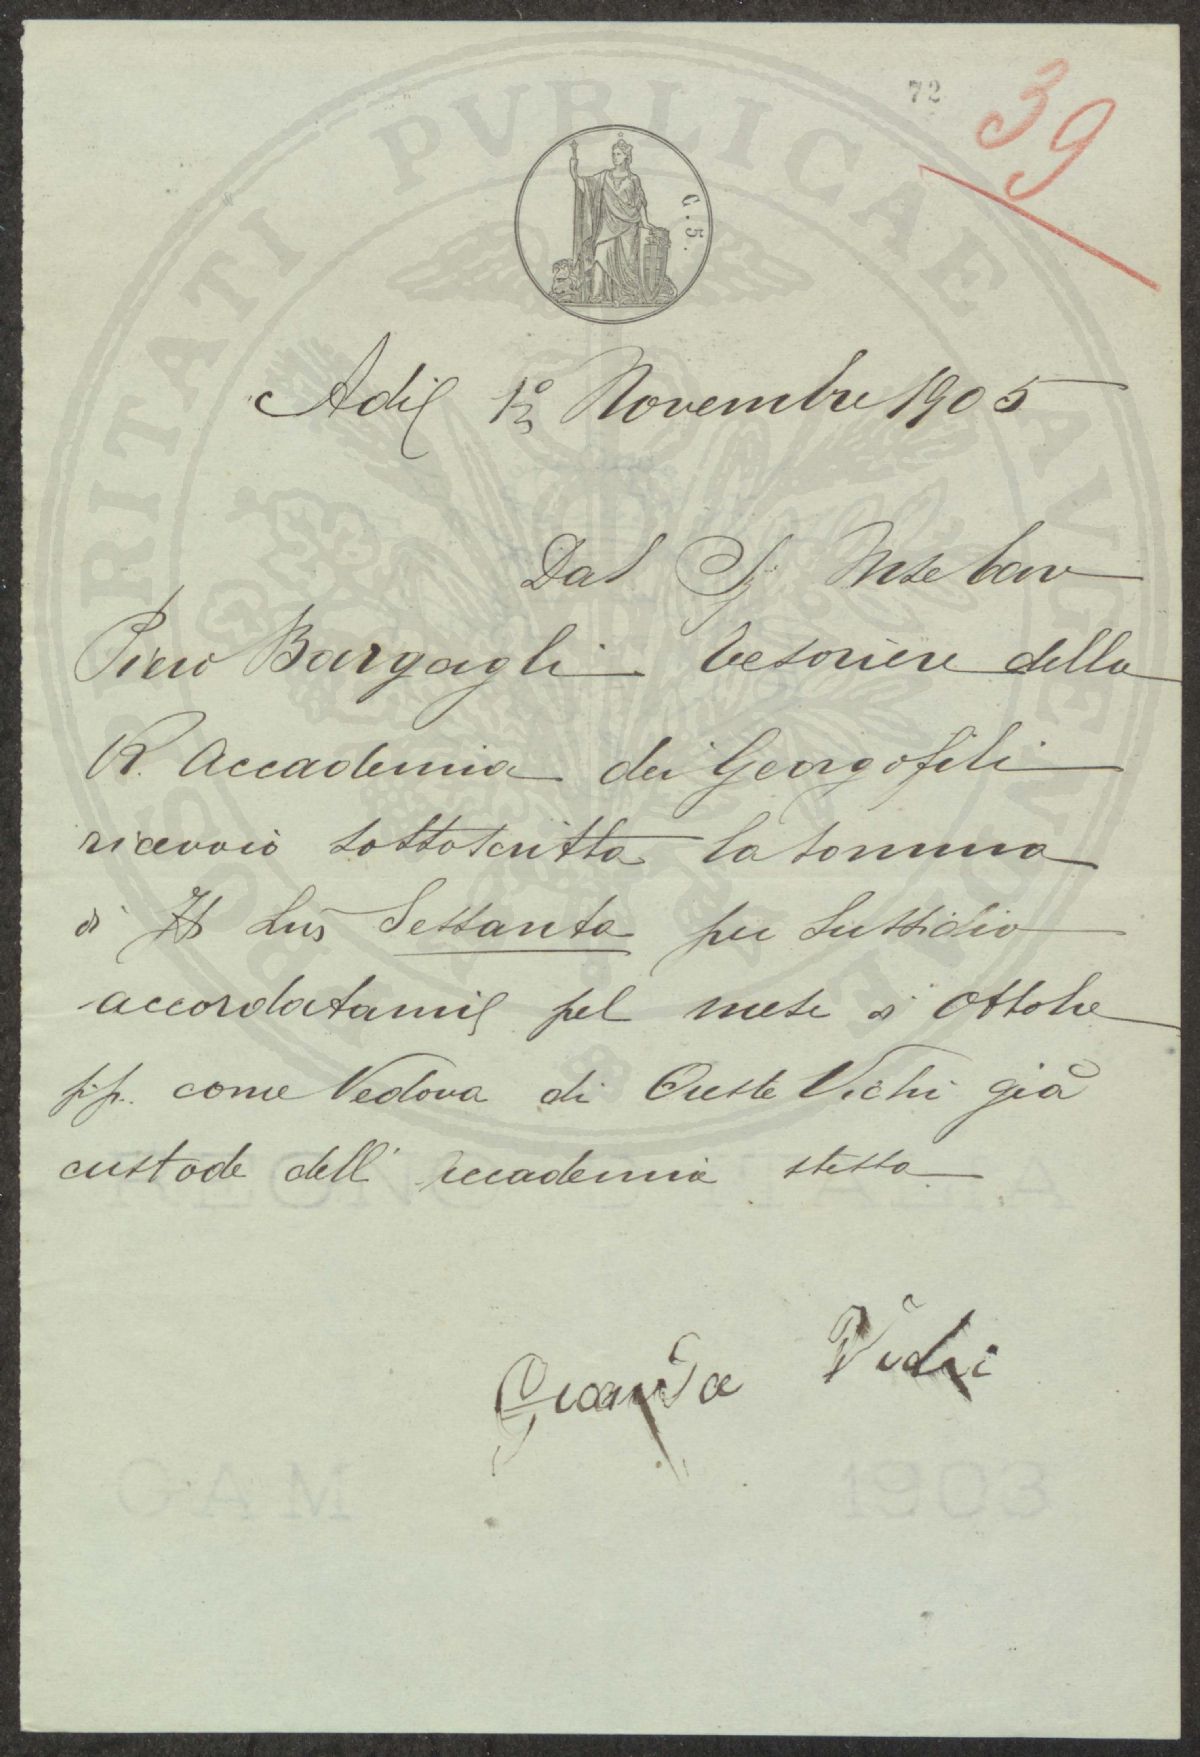 72
39
C. 5.
PROSPERITATI PVBLICAE AVGENDAE
Adì 1º Novembre 1905
Dal Sig Mse Cav
Piero Bargagli tesoriere della
R. Accademia dei Georgofili
ricevvio sottoscritta la somma
di Lire Sessanta per sussidio
accordatami pel mese di Ottobre
p.p. come Vedova di Oreste Vichi già
custode dell' Accademia stessa
Vichi
CAM 1903